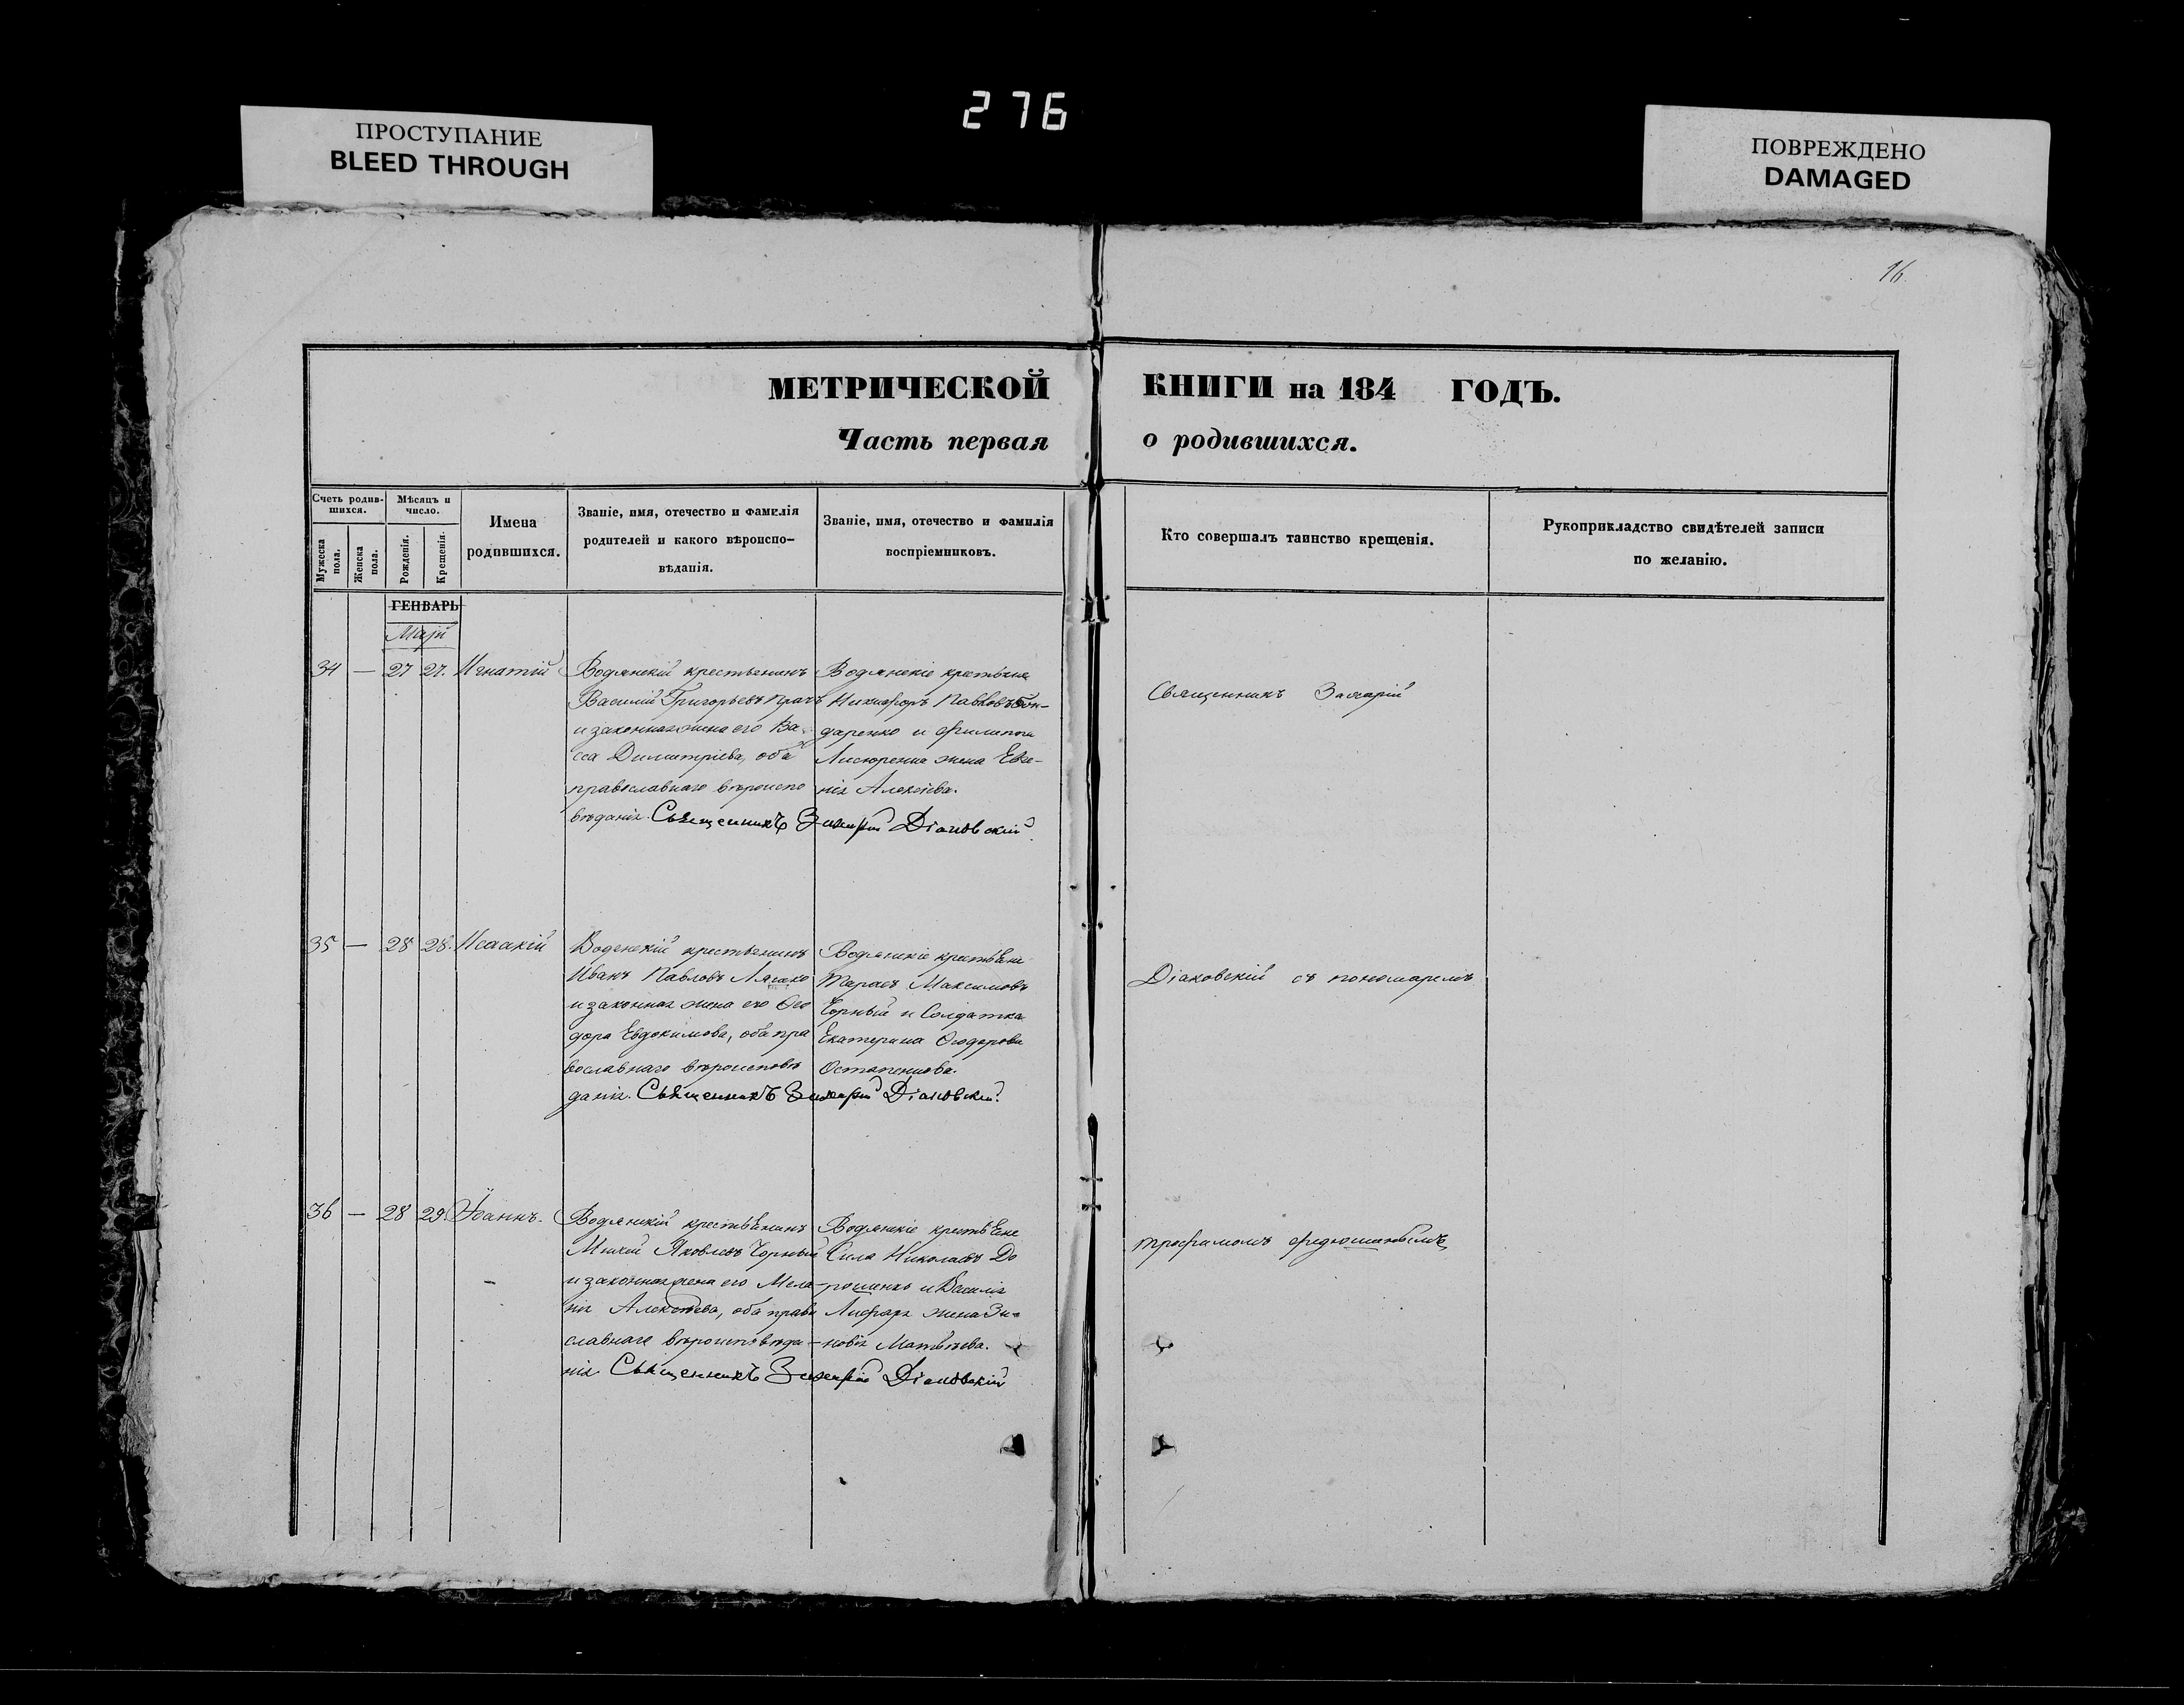 276
ПРОСТУПАНИЕ
BLEED THROUGH
ПОВРЕЖДЕНО
DAMAGED
16.
МЕТРИЧЕСКОЙ КНИГИ на 184 ГОДЪ.
Часть первая о родившихся.
Счетъ родив-
шихся.
Мужеска
пола.
Женска
пола.
Мѣсяцъ и
число.
Рожденія.
Крещенія.
Имена
родившихся.
Званіе, имя, отечество и фамилія
родителей и какого вѣроиспо-
вѣданія.
Званіе, имя, отечество и фамилія
воспріемниковъ.
Кто совершалъ таинство крещенія.
Рукоприкладство свидѣтелей записи
по желанію.
ГЕНВАРЬ
Маій
34 — 27 27. Игнатій
Водянскій крестьянинъ
Василій Григорьевъ
и законная жена его Ва-
сса Димитріева, оба
православнаго вѣроиспо
вѣданія. Священникъ Захарій Діаковскій
Водянскіе крестьяне
Никифоръ Павловъ Бон-
даренко и Филиппа
жена Евге-
нія Алексіева.
Священникъ Захарій
35 — 28 28. Исаакій
Водянскій крестьянинъ
Иванъ Павловъ
и законная жена его Ѳео
дора Евдокимова, оба пра
вославнаго вѣроисповѣ
данія. Священникъ Захарій Діаковскій.
Водянскіе крестьяне
Тарасъ Максимовъ
Чорный и Солдатка
Екатерина Ѳеодорова
Остапенкова.
Діаковскій съ пономаремъ
36 — 28 29. Іоаннъ.
Водянскій крестьянинъ
Яковлевъ Чорный
и законная жена его Мела-
нія Алексѣева, оба право
славнаго вѣроисповѣда-
нія Священникъ Захарій Діаковскій
Водянскіе крестьяне
Сила Николаевъ До
рошенко и Василія
жена Зи-
новія Матвѣева.
Трофимомъ